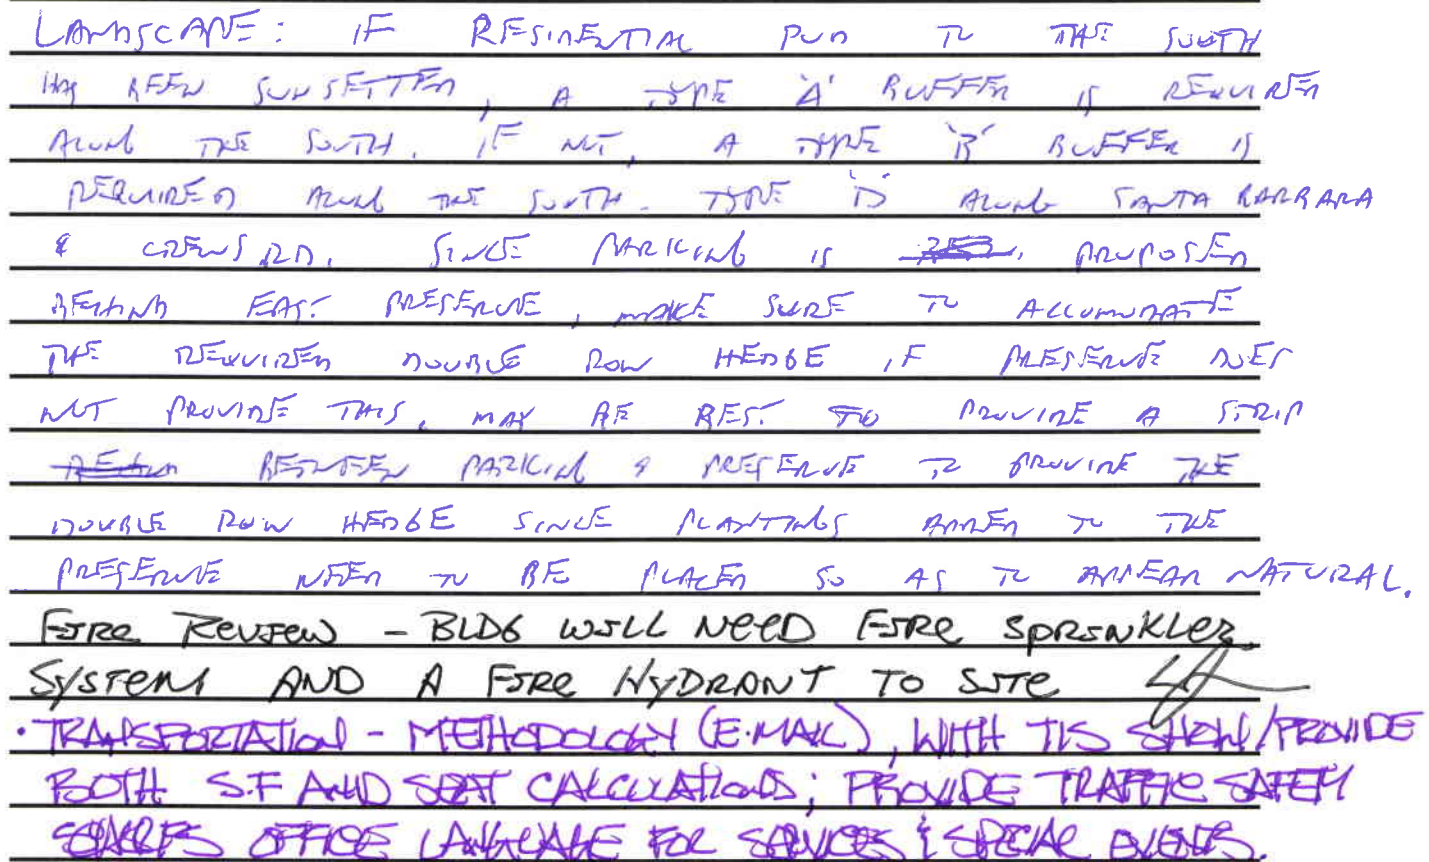 LANDSCAPE: IF RESIDENTIAL PUD TO THE SOUTH
HAS BEEN SUNSETTED, A TYPE 'A' BUFFER IS REQUIRED
ALONG THE SOUTH. IF NOT, A TYPE 'B' BUFFER IS
REQUIRED ALONG THE SOUTH. TYPE 'D' ALONG SANTA BARBARA
& CREWS RD. SINCE PARKING IS PROPOSED
BEHIND EAST PRESERVE, MAKE SURE TO ACCOMMODATE
THE REQUIRED DOUBLE ROW HEDGE IF PRESERVE DOES
NOT PROVIDE THIS, MAY BE BEST TO PROVIDE A STRIP
BETWEEN PARKING & PRESERVE TO PROVIDE THE
DOUBLE ROW HEDGE SINCE PLANTINGS ADDED TO THE
PRESERVE NEED TO BE PLACED SO AS TO APPEAR NATURAL.
FIRE REVIEW - BLDG WILL NEED FIRE SPRINKLER
SYSTEM AND A FIRE HYDRANT TO SITE
• TRANSPORTATION - METHODOLOGY (E-MAIL), WITH TIS SHOW/PROVIDE
BOTH S.F AND SEAT CALCULATIONS; PROVIDE TRAFFIC SAFETY
OFFICE LANGUAGE FOR SERVICES & SPECIAL EVENTS.